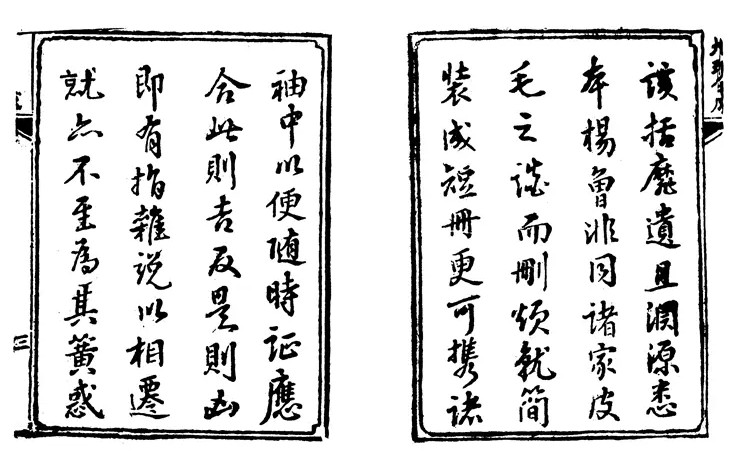 該括靡遺且淵源悉
本楊曾非同諸家皮
毛之談而刪煩就簡
裝成短冊更可携諸
袖中以便隨時証應
合此則吉反是則凶
即有指雜説以相遷
就亦不至為其簧惑